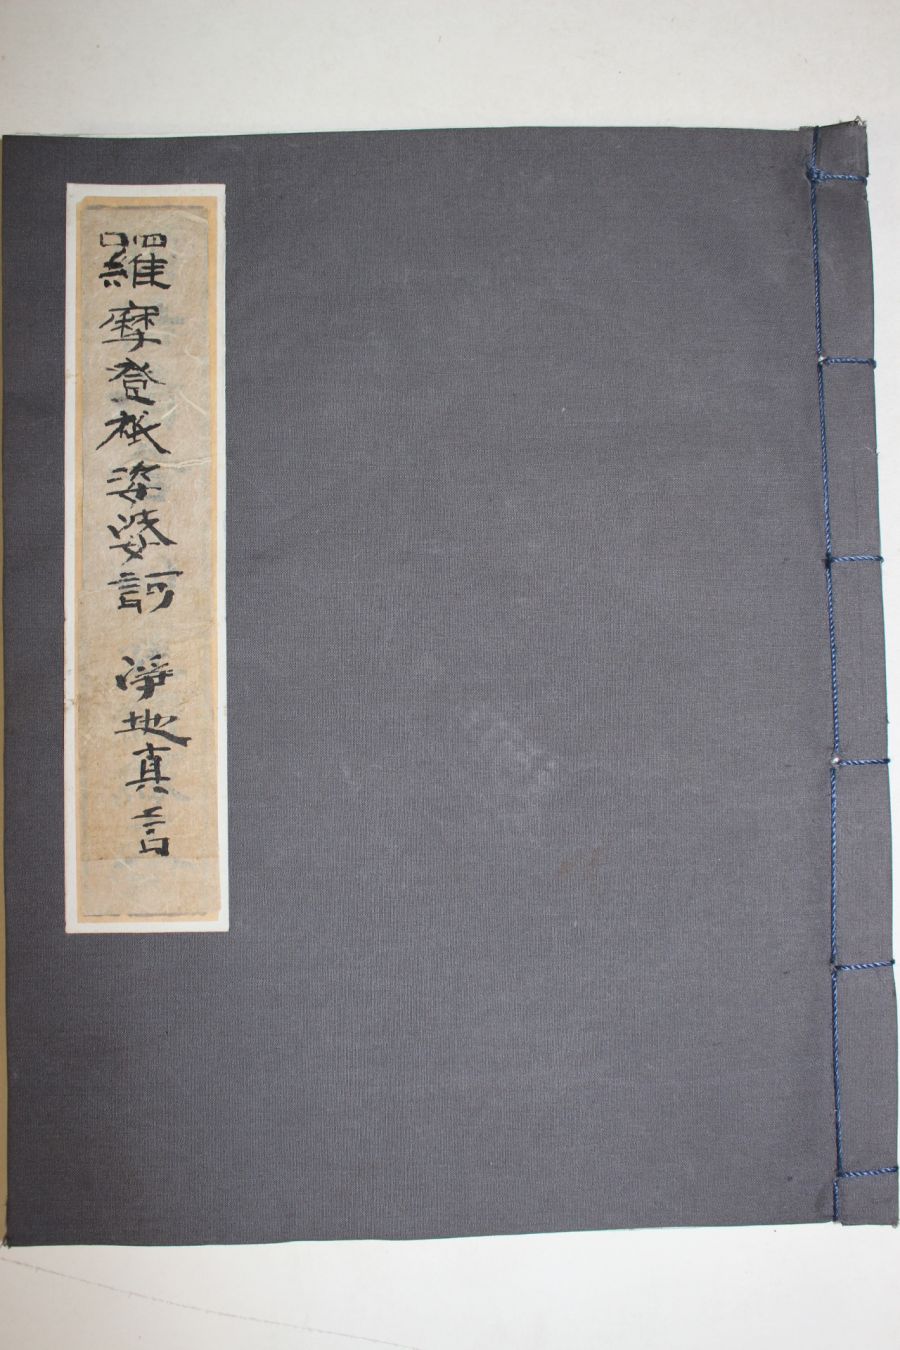 囉摩登祇姿婆訶 淨地真言